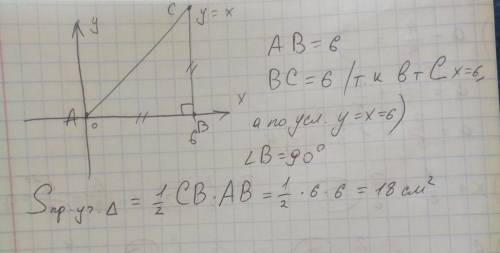 C y = x
y
AB = 6
BC = 6 (т.к в т C x=6,
а по усл. y = x = 6)
∠B = 90°
A 0 6 B x
Sпр-уг.Δ = 1/2 CB · AB = 1/2 · 6 · 6 = 18 см²